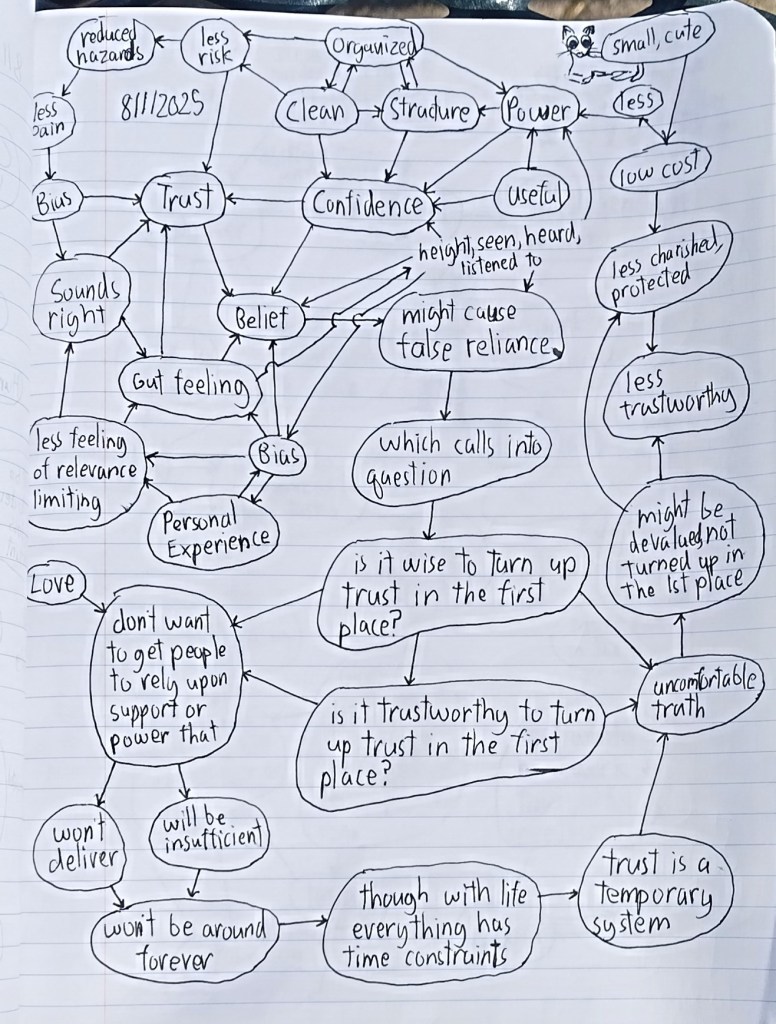 reduced
hazards
less
risk
Organized
small, cute
less
pain
8/1/2025
Clean
Stradure
Power
less
low cost
Bias
Trust
Confidence
useful
height, seen, heard,
listened to
less charished,
protected
Sounds
right
Belief
might cause
false reliance.
Gut feeling
less
trustworthy
less feeling
of relevance
limiting
Bias
which calls into
question
Personal
Experience
might be
devalued, not
turned up in
the 1st place
Love
is it wise to turn up
trust in the first
place?
don't want
to get people
to rely upon
support or
power that
uncomfortable
truth
is it trustworthy to turn
up trust in the first
place?
won't
deliver
will be
insufficient
won't be around
forever
though with life
everything has
time constraints
trust is a
temporary
system